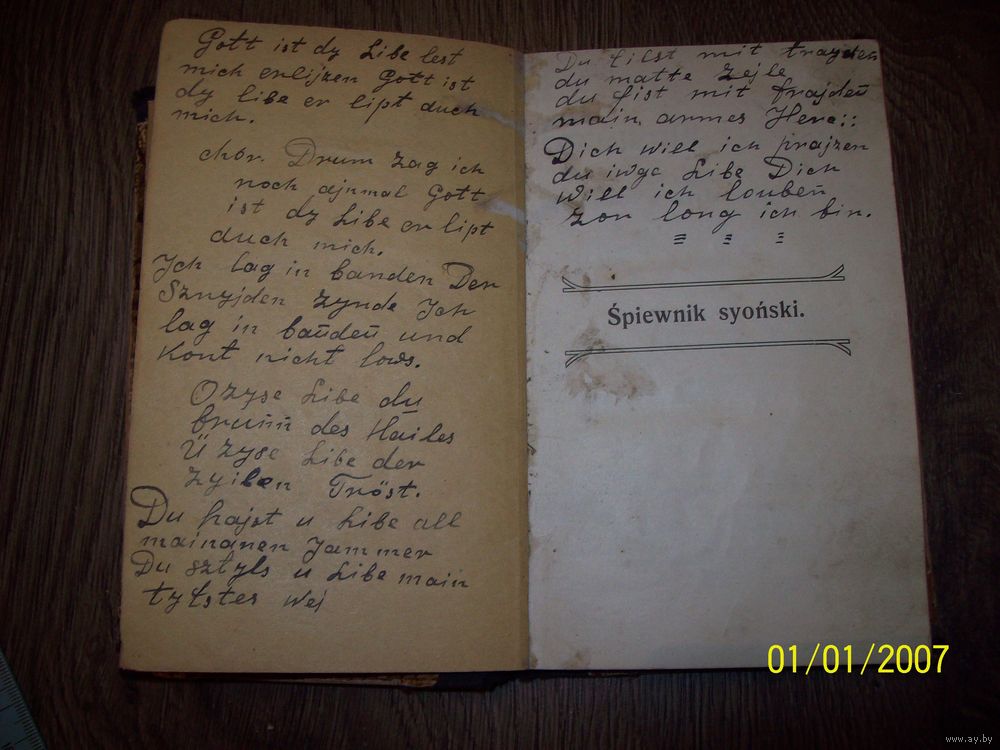 Gott ist dy Libe lest
mich erlijzen Gott ist
dy libe er lipt duch
mich.
chór. Drum zag ich
noch ajnmal Gott
ist dy Libe er lipt
duch mich.
Ich lag in banden Der
Sznyjden zynde Ich
lag in bańdeń und
Kont nicht lows.
Ozyse Libe du
bruńń des Hailes
Ü zyse Libe der
zyilen Tröst.
Du hajst u Libe all
mainanen Jammer
Du sztyls u Libe main
tyfstes Wej
Du filst mit trayden
du matte zejle
du fist mit frajdeń
main armes Herc::
Dich will ich prajzen
du iwge Libe Dich
will ich loubeń
zon long ich bin.
Śpiewnik syoński.
01/01/2007
www.ay.by